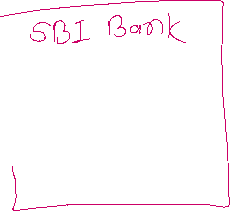 SBI Bank